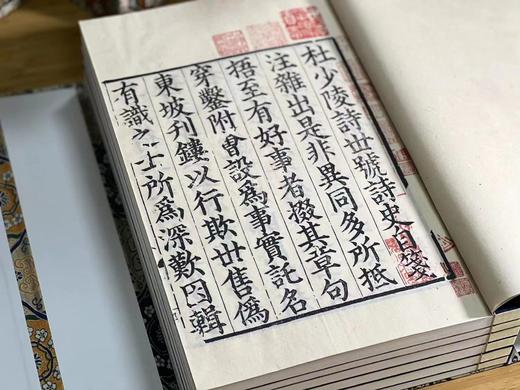 杜少陵詩世號詩史自箋
注雜出是非異同多所抵
牾至有好事者掇其章句
穿鑿附會設為事實託名
東坡刊鏤以行欺世售偽
有識之士所為深歎因輯